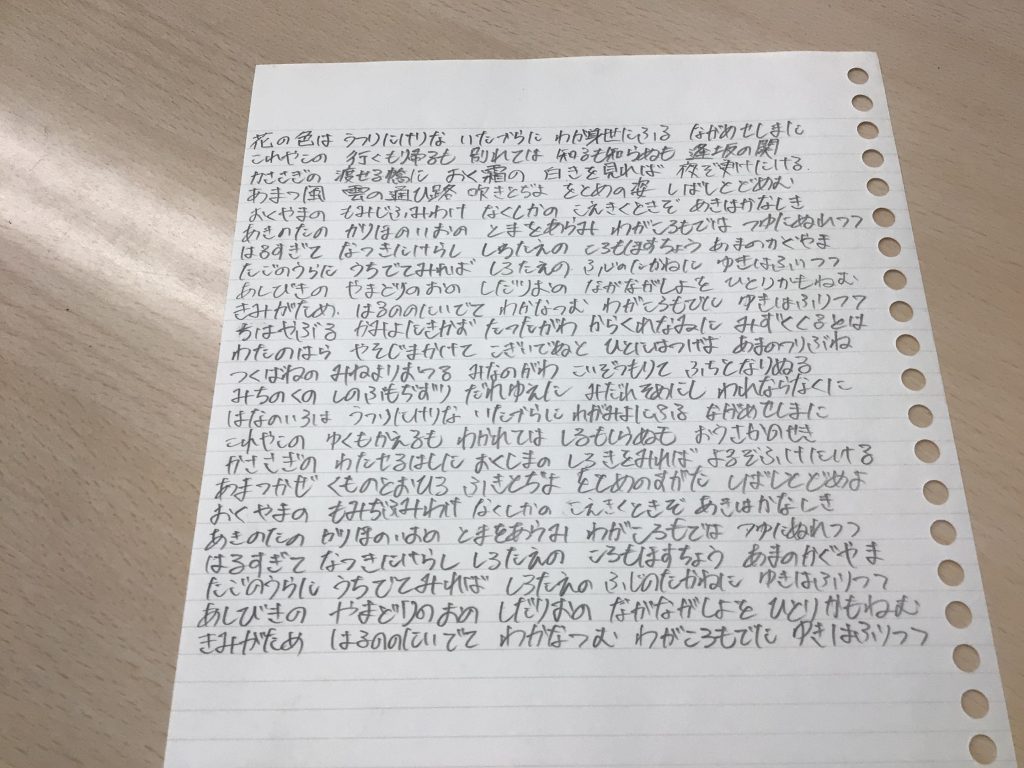 花の色は うつりにけりな いたづらに わが身世にふる ながめせしまに
これやこの 行くも帰るも 別れては 知るも知らぬも 逢坂の関
かささぎの 渡せる橋に おく霜の 白きを見れば 夜ぞ更けにける
あまつ風 雲の通ひ路 吹きとぢよ をとめの姿 しばしとどめむ
おくやまの もみじふみわけ なくしかの こえきくときぞ あきはかなしき
あきのたの かりほのいおの とまをあらみ わがころもでは つゆにぬれつつ
はるすぎて なつきにけらし しろたえの ころもほすちょう あまのかぐやま
たごのうらに うちでてみれば しろたえの ふじのたかねに ゆきはふりつつ
あしびきの やまどりのおの しだりおの ながながしよを ひとりかもねむ
きみがため はるののにいでて わかなつむ わがころもでに ゆきはふりつつ
ちはやぶる かみよにきかず たったがわ からくれなゐに みずくぐるとは
わたのはら やそじまかけて こぎいでぬと ひとにはつげよ あまのつりぶね
つくばねの みねよりおつる みなのがわ こいぞつもりて ふちとなりぬる
みちのくの しのぶもぢずり だれゆえに みだれそめにし われならなくに
はなのいろは うつりにけりな いたづらに わがみよにふる ながめせしまに
これやこの ゆくもかえるも わかれては しるもしらぬも おうさかのせき
かささぎの わたせるはしに おくしもの しろきをみれば よるぞふけにける
あまつかぜ くものとおひろ ふきとぢよ をとめのすがた しばしとどめよ
おくやまの もみぢふみわけ なくしかの こえきくときぞ あきはかなしき
あきのたの かりほのいおの とまをあらみ わがころもでは つゆにぬれつつ
はるすぎて なつきにけらし しろたえの ころもほすちょう あまのかぐやま
たごのうらに うちでてみれば しろたえの ふじのたかねに ゆきはふりつつ
あしびきの やまどりのおの しだりおの ながながしよを ひとりかもねむ
きみがため はるののにいでて わかなつむ わがころもでに ゆきはふりつつ